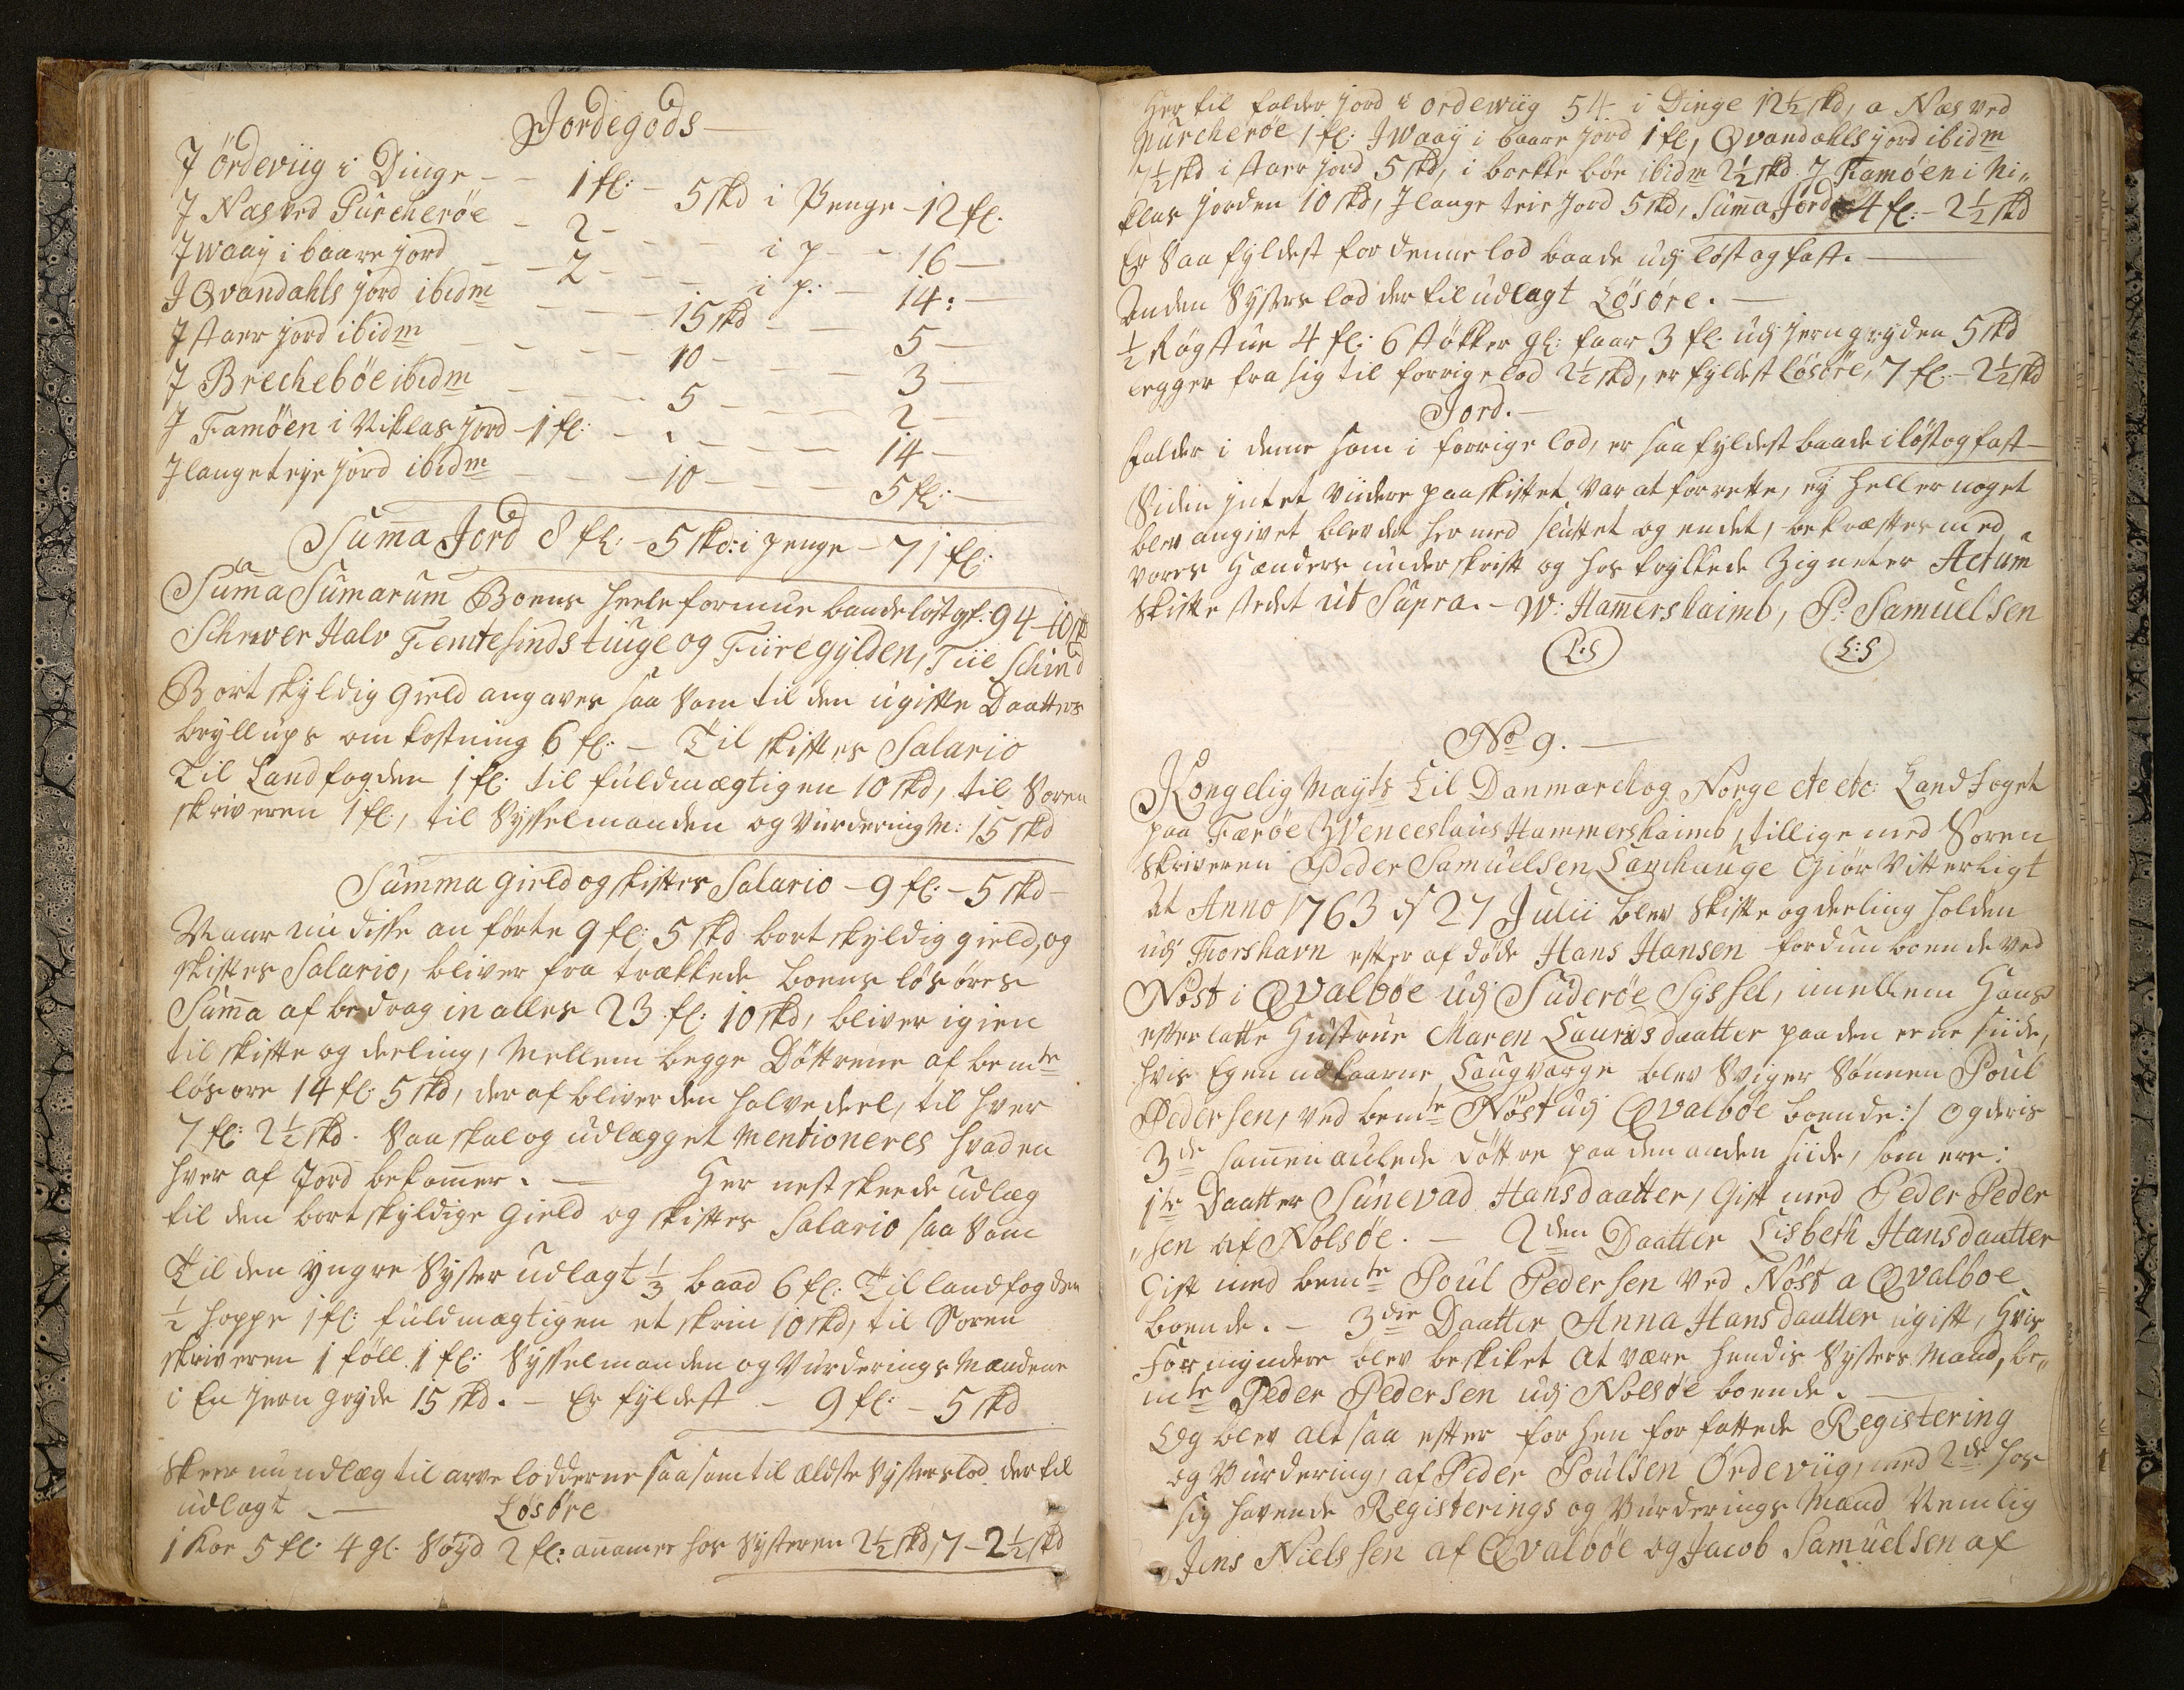 Jordegods
J Ördeviig i Dinge - - 1 fl: - 5 skd i Penge - 12 fl.
J Næs ved Purcherøe - 2 - - - i p - - 16 -
J waaij i baare jord - - 2 - - i p: - 14: -
J Qvandahls jord ibidm - - - 15 skd - - 5 -
J staer jord ibidm - - - - 10 - - - 3 -
J Brechebøe ibidm - - - - 5 - - - 2 -
J Famöen i Niklas jord - 1 fl: - - - - 14 -
J langeteije jord ibidm - - - 10 - - - 5 fl: -
Suma Jord 8 fl: - 5 skd: i penge - 71 fl:
Suma Sumarum Boens heele formue baade løst og f: 94 - 10 sk
Schriver Halv Femtesinds tiuge og Fiire gylden, Tiie Schind
Bortskyldig Gield angaves saa som til den ugifte Daatters
bryllups omkostning 6 fl: - Til skiftes Salario
Til Landfogden 1 fl: til fuldmægtigen 10 skd, til Soren
skriveren 1 fl:, til Sysselmanden og Vurderings M: 15 skd
Summa gield og skiftes Salario - 9 fl: - 5 skd -
Naar nu disse anførte 9 fl: 5 skd bortskyldig gield, og
skiftes Salario, bliver fra trækkede boens løsøres
Suma afbedrag in alles 23 fl: 10 skd, bliver igien
til skifte og deeling, Mellem begge Døttrene af bemte
løsøre 14 fl: 5 skd, der af bliver den halve deel, til hver
7 fl: 2½ skd. Saa skal og udlægget Mentioneres hvad en
hver af Jord bekomer. - Her nest skeede udlæg
til den bortskyldige Gield og skiftes Salario saa som
Til den yngre Syster udlagt 1/3 baad 6 fl: Til landfogden
½ hoppe 1 fl: fuldmægtigen et skrin 10 skd, til Soren
skriveren 1 föll 1 fl: Sysselmanden og Vurderings Mændene
i En Jern gryde 15 skd. - Er fyldest - 9 fl: - 5 skd
Skeer nu udlæg til arve lodderne saasom til Ældste Systers lod der til
udlagt - Løsøre
1 Koe 5 fl: 4 gl. Søyd 2 fl: anamer hos Systeren 2½ skd, 7 - 2½ skd
Her til falder jord i ordewiig 54 i Dinge 12½ skd, a Næs ved
purcherøe 1 fl: J waaÿ i baare jord 1 fl, Qvandahls jord ibidm
7½ skd i staer jord 5 skd, i brekke bøe ibidm 2½ skd J Famøen i Ni„
klas jorden 10 skd, J lange teie jord 5 skd, Suma Jord 4 fl: - 2½ skd
Er saa fyldest for denne lod baade udj løst og fast. -
Anden Systers lod der til udlagt Løsøre. -
½ Røgstue 4 fl: 6 støkker gl: faar 3 fl: udj jern gryden 5 skd
legger fra sig til forrige lod 2½ skd, er fyldest Løsøre, 7 fl: - 2½ skd
Jord. -
falder i denne som i forrige lod, er saa fyldest baade i løst og fast -
Siden intet viidere paa skiftet var at forrette, ey heller noget
blev angivet, blev det her med sluttet og endet, bekræftes med
vores Hænders underskrift og hos trykkede Zigneter Actum
Skifte stedet ut Supra. - W: Hamershaimb, P. Samuelsen
L:S L:S
No 9. -
Kongelig Mayts Til Danmarck og Norge etc etc: Landfoget
paa Færøe Wenceslaus Hammershaimb, tillige med Soren
skriveren Peder Samuelsen Lamhauge Giør Vitterligt
At Anno 1763 d 27 Julii blev Skifte og deeling holden
udj Thorshavn efter afdøde Hans Hansen fordum boende ved
Nøst i Qvalbøe udj Suderøe Syssel, imellem Hans
efterlatte Hustrue Maren Lauridsdaatter paa den eene siide,
hvis Egen udkaarne Laugvarge blev Sviger Sønnen Poul
Pedersen, ved bemte Nøst udj Qvalbøe boende :/ og deris
3de samenaulede døttre paa den anden siide, som ere:
1te Daatter Sunevad Hansdaatter, Gift med Peder Peder
„sen af Nolsøe. - 2den Daatter Lisbeth Hansdaatter
Gift med bemte Poul Pedersen ved Nøst a Qvalboe
boende. - 3die Daatter Anna Hansdaatter ugift, Hvis
Formyndere blev beskiket At være hendis Systers Mand, be„
mte Peder Pedersen udj Nolsøe boende. -
Og blev alt saa efter forhen forfattede Registering
og Vurdering, af Peder Poulsen Ördeviig, med 2de hos
sig havende Registerings og Vurderings Mænd Nemlig
Jens Nielssen af Qvalbøe og Jacob Samuelsen af